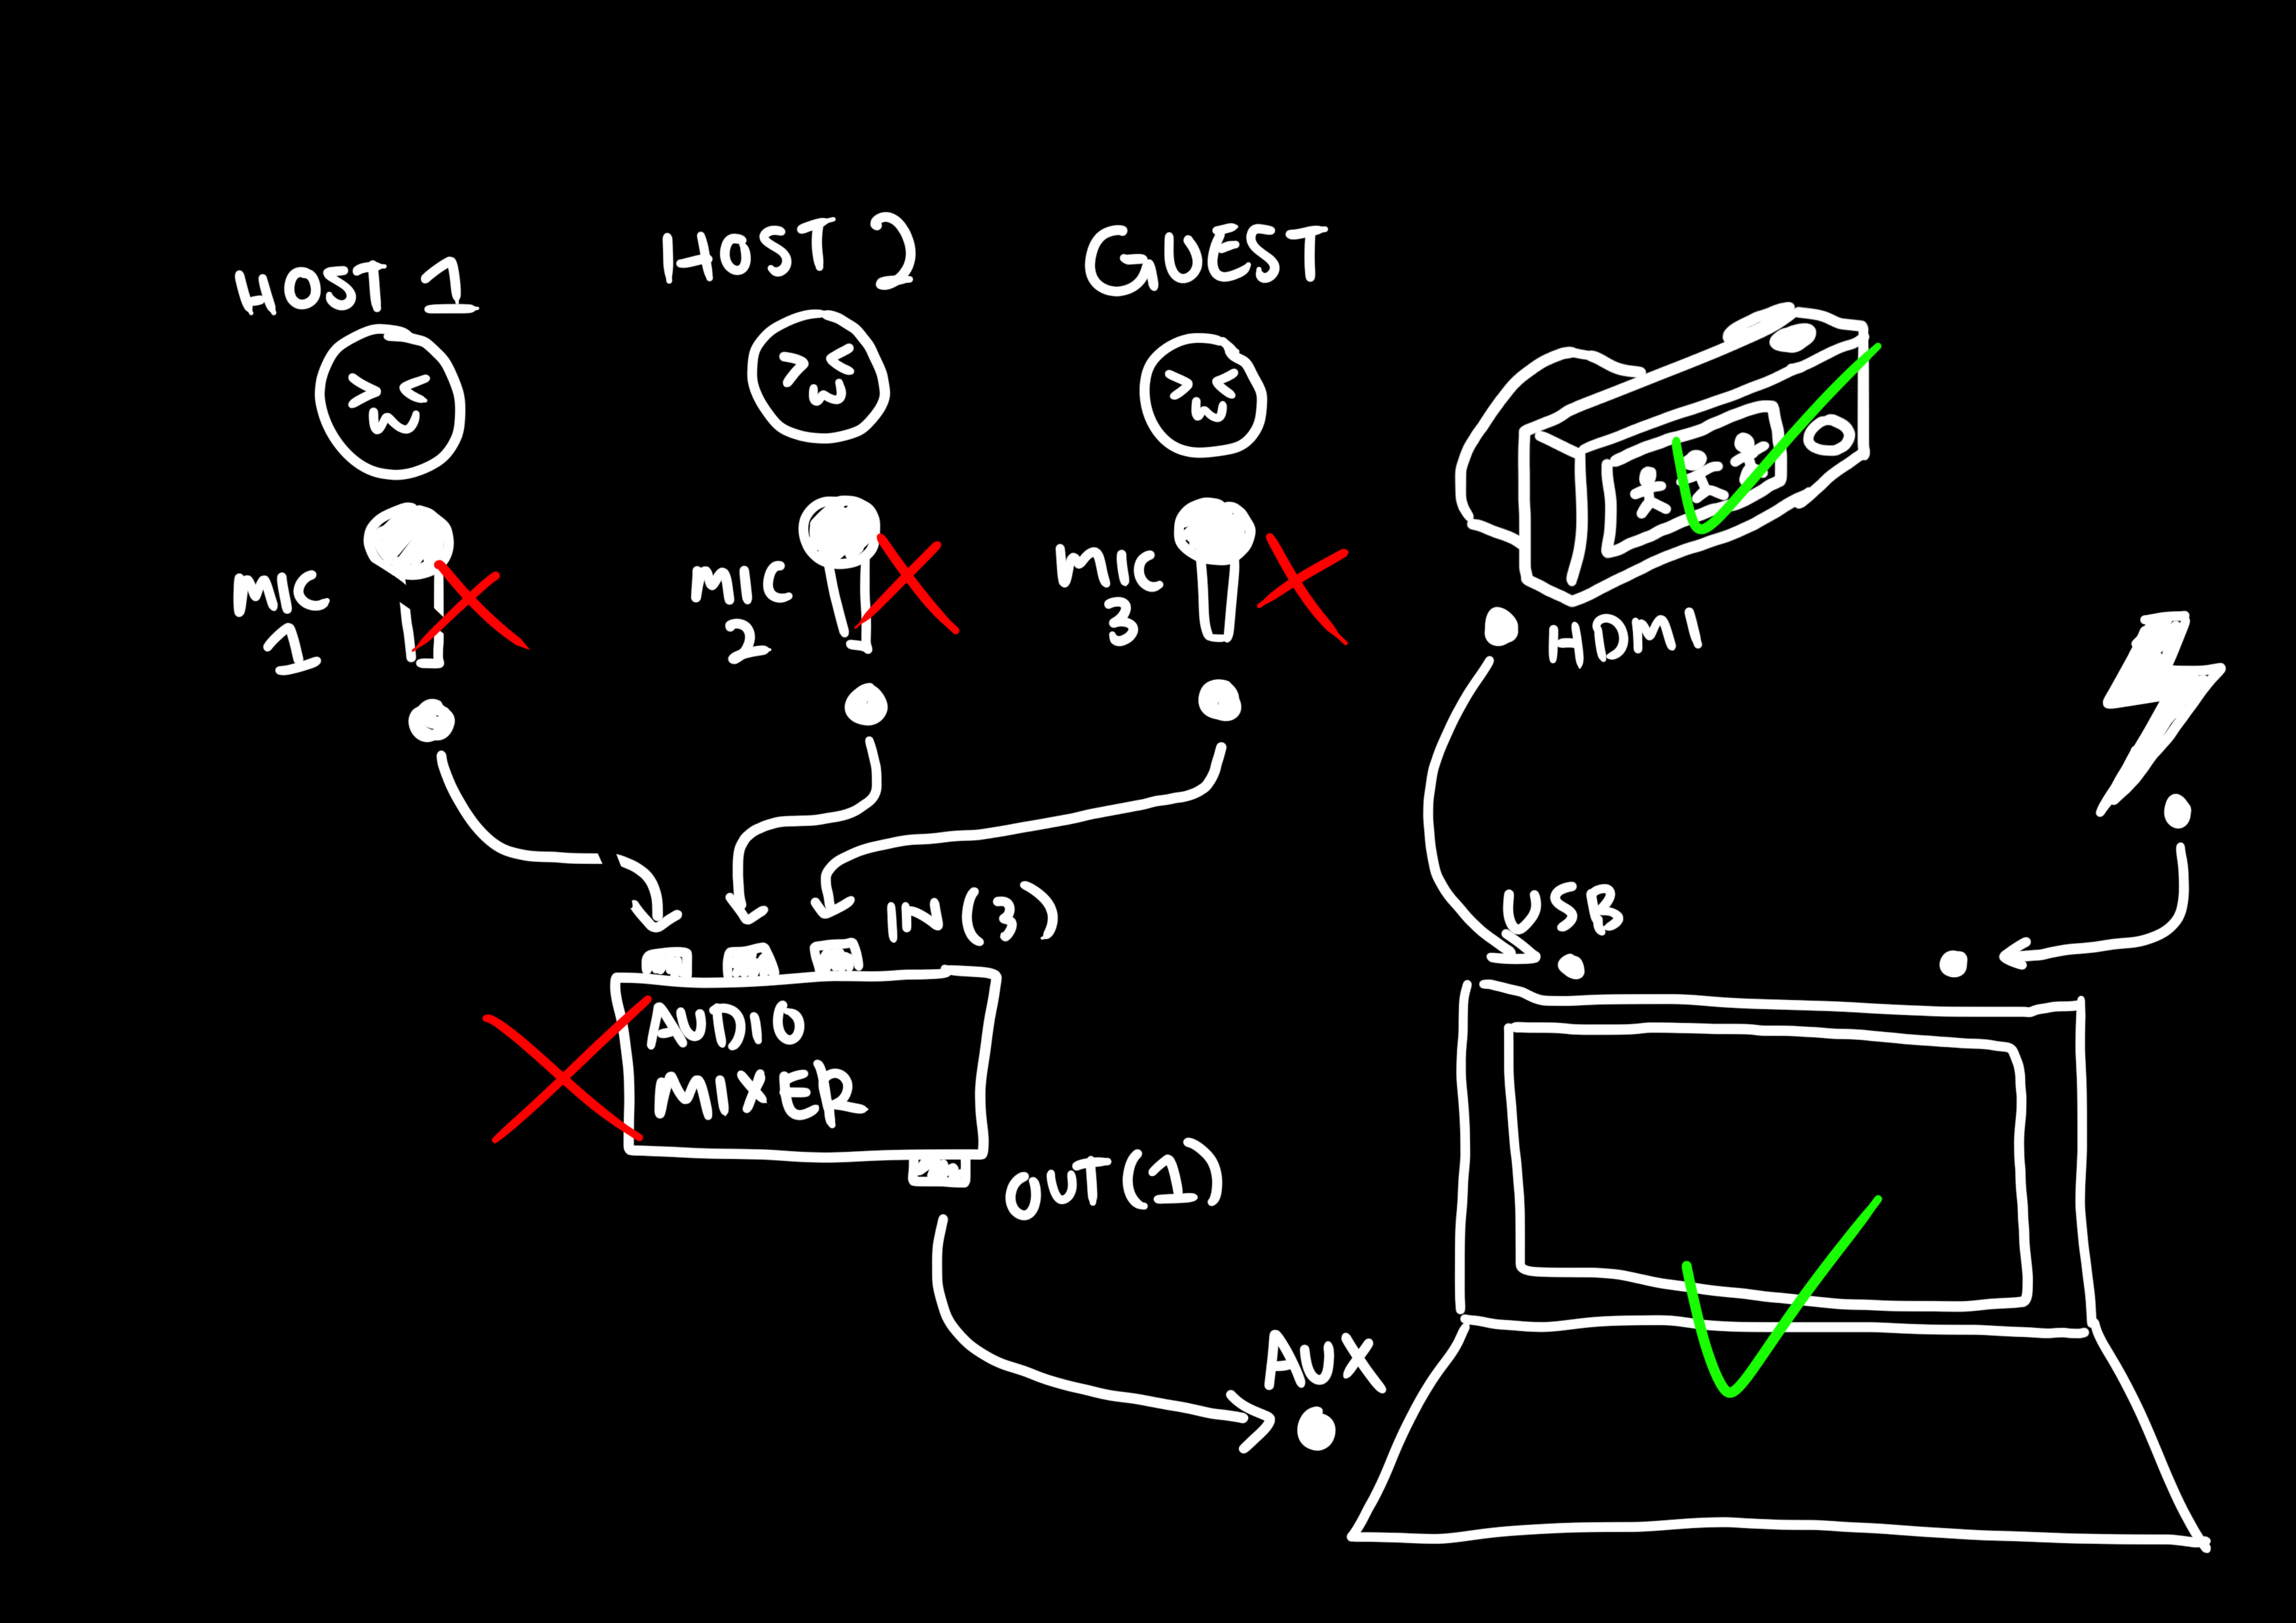 HOST 1
HOST 2
GUEST
MIC
1
MIC
2
MIC
3
HDMI
IN (3)
USB
AUDIO
MIXER
OUT (1)
AUX